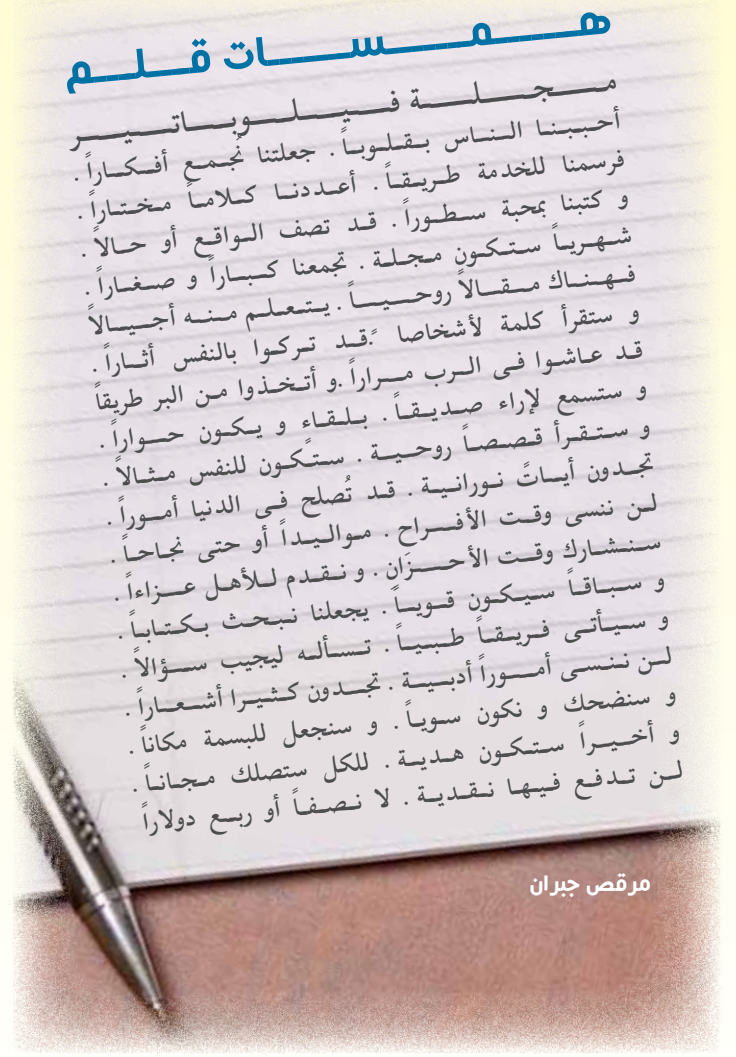 همسات قلم
مجلة فيلوباتير
أحببنا الناس بقلوباً . جعلتنا نُجمع أفكاراً .
فرسمنا للخدمة طريقاً . أعددنا كلاماً مختاراً .
و كتبنا بمحبة سطوراً . قد تصف الواقع أو حالاً .
شهرياً ستكون مجلة . تجمعنا كباراً و صغاراً .
فهناك مقالاً روحيـاً . يتعلم منه أجيالاً
و ستقرأ كلمة لأشخاصا ً. قد تركوا بالنفس أثاراً .
قد عاشوا فى الرب مراراً . و أتخذوا من البر طريقاً
و ستسمع لإراء صديقاً . بلقاء و يكون حواراً .
و ستقرأ قصصاً روحية . ستكون للنفس مثالاً .
تجدون أيساتً نورانية . قد تُصلح فى الدنيا أموراً .
لن ننسى وقت الأفراح . مواليداً أو حتى نجاحاً .
سنشارك وقت الأحزَانِ . و نقدم للأهل عزاءاً .
و سباقاً سيكون قوياً . يجعلنا نبحث بكتاباً .
و سيأتى فريقاً طبياً . تسأله ليجيب سؤالاً .
لن ننسى أموراً أدبية . تجدون كثيرا أشعاراً .
و سنضحك و نكون سوياً . و سنجعل للبسمة مكاناً .
و أخيراً ستكون هدية . للكل ستصلك مجاناً .
لن تدفع فيها نقدية . لا نصفاً أو ربع دولاراً
مرقص جبران